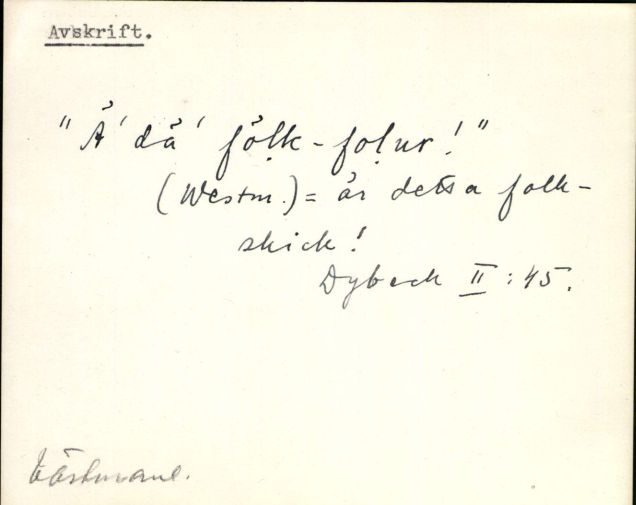 Avskrift.
"Å' då' fölk-folur!"
(Westm.) = är detta folk-
skick!
Dybeck II:45.
Västmanl.